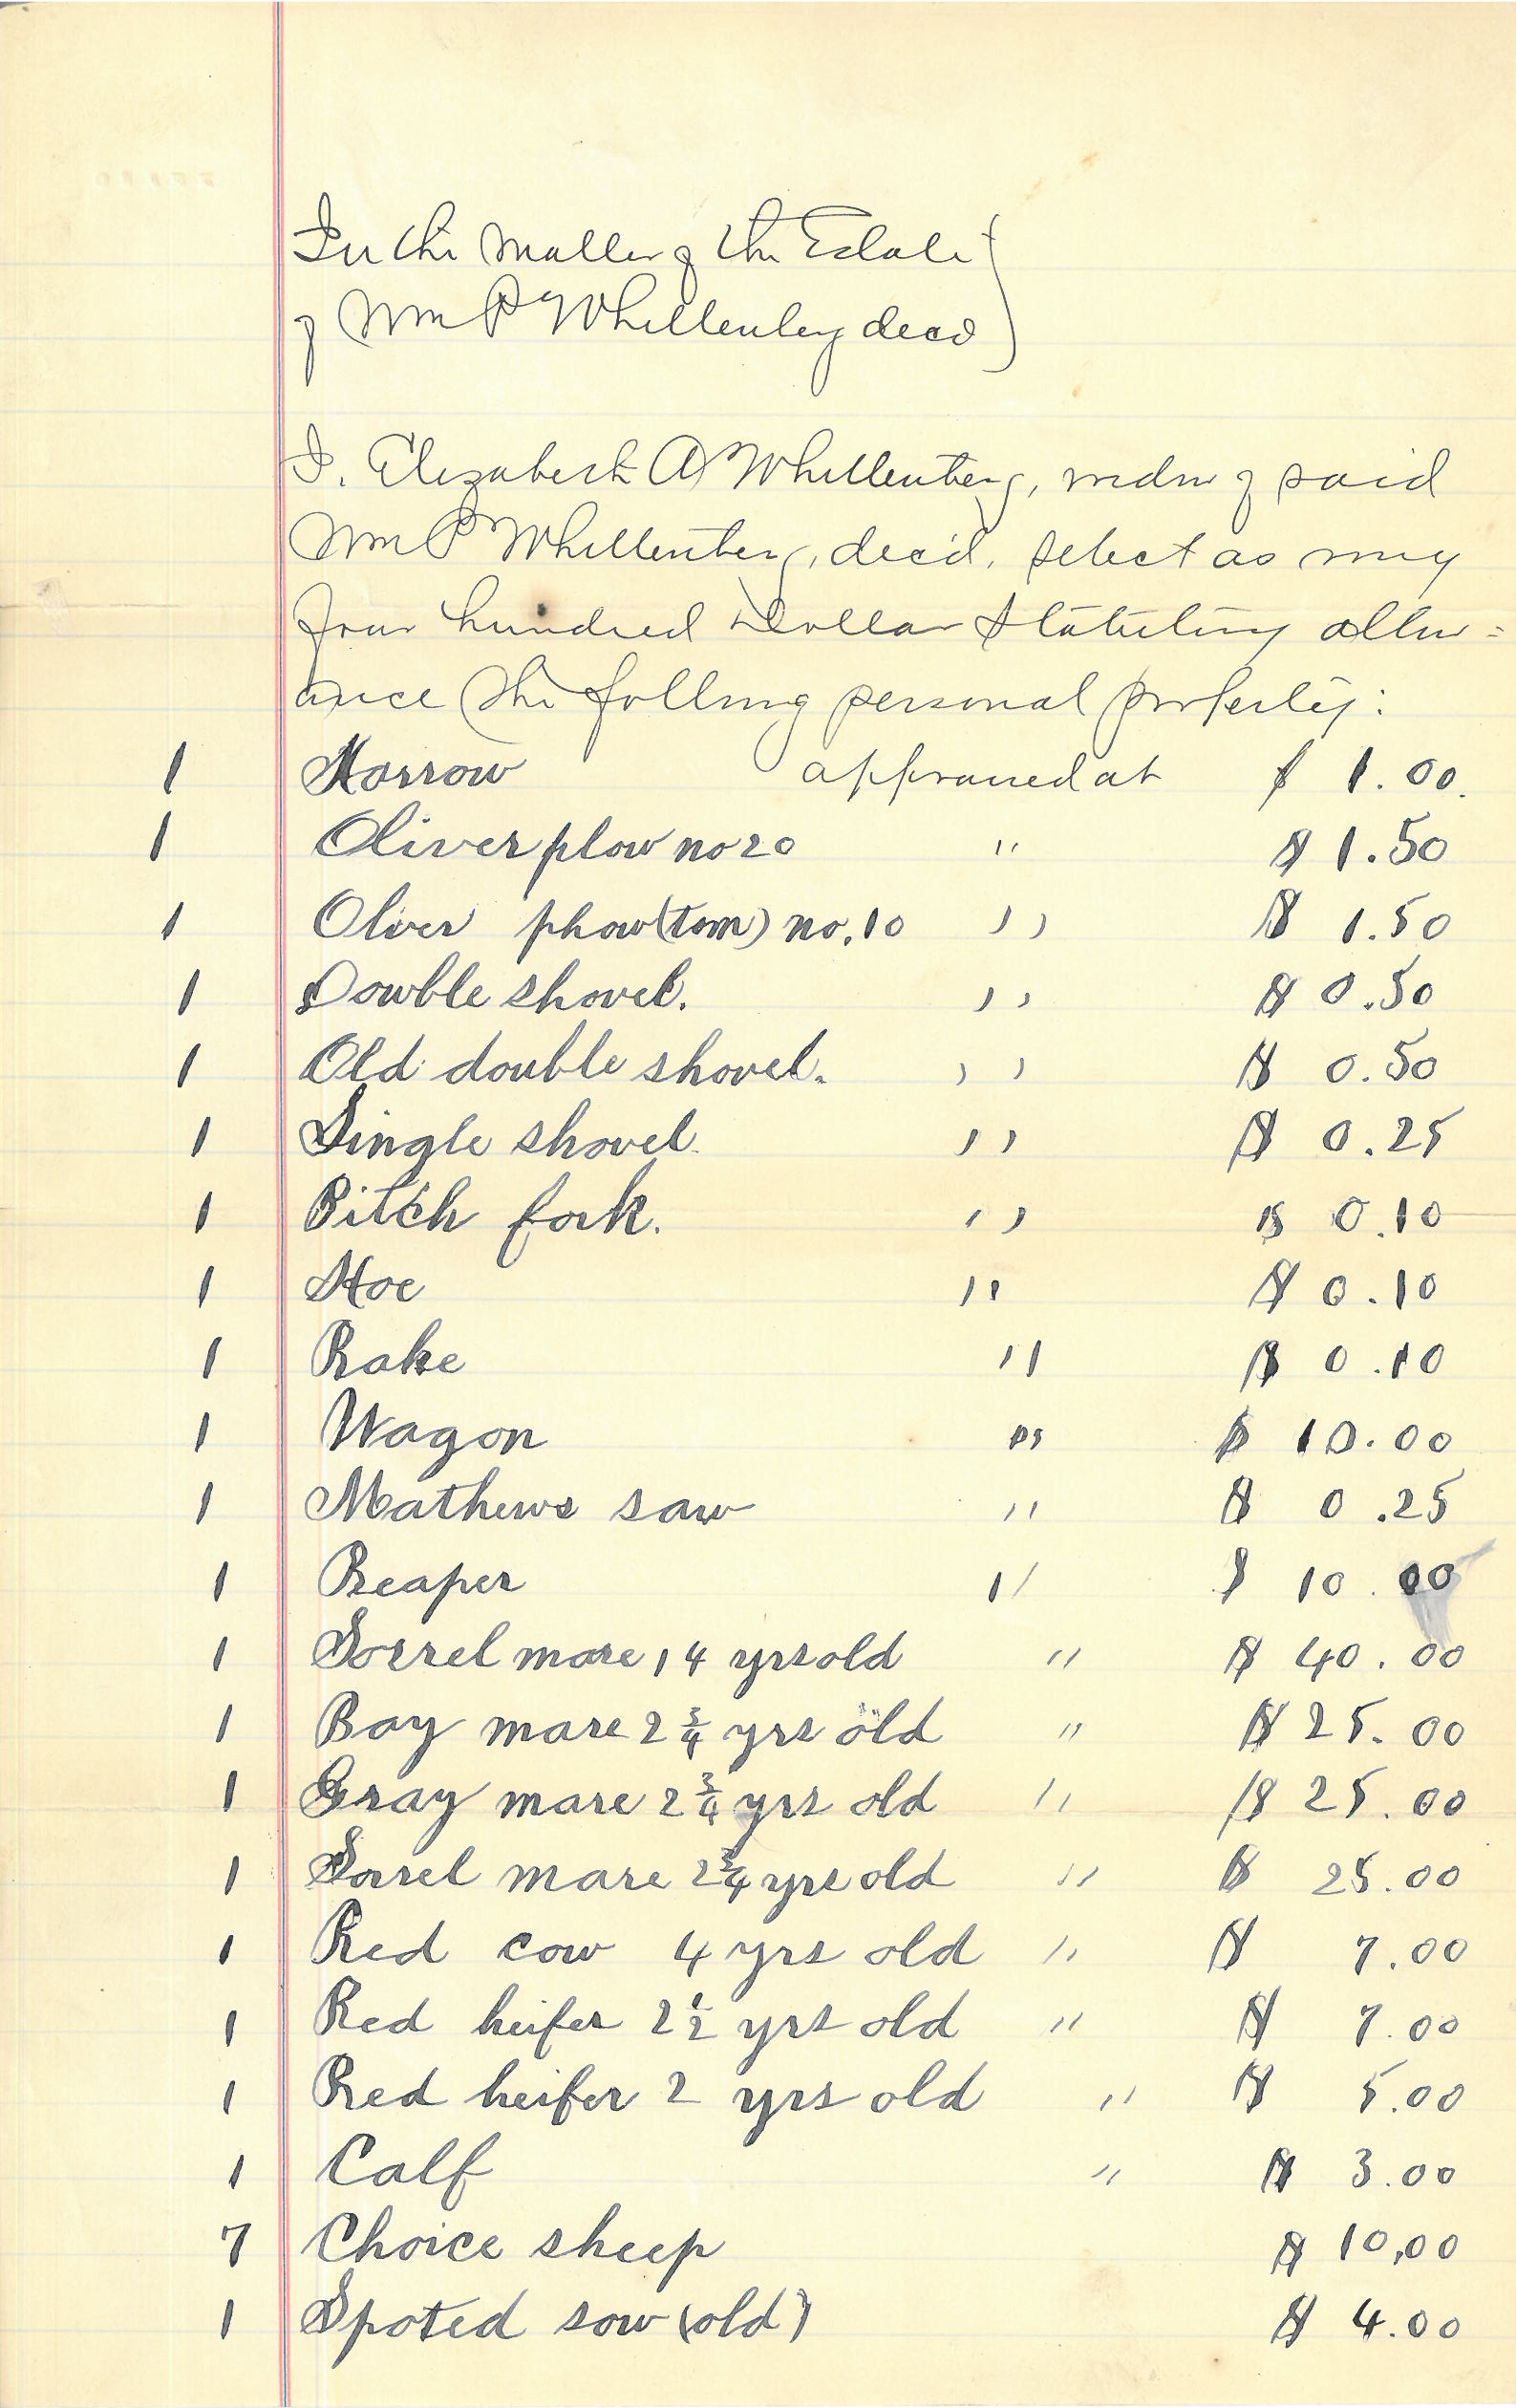 In the Matter of the Estate
of Wm P Whittenberg decd
I, Elizabeth A Whittenberg, widow of said
Wm P Whittenberg, dec'd, select as my
four hundred Dollar Statutory allow=
ance the following personal property:
1 Harrow appraised at $ 1.00.
1 Oliver plow no 20 " $ 1.50
1 Oliver phow (tom) no. 10 " $ 1.50
1 Dowble shovel. " $ 0.50
1 Old double shovel. " $ 0.50
1 Single shovel. " $ 0.25
1 Pitch fork. " $ 0.10
1 Hoe " $ 0.10
1 Rake " $ 0.10
1 Wagon " $ 10.00
1 Mathews saw " $ 0.25
1 Reaper " $ 10.00
1 Sorrel mare 14 yrs old " $ 40.00
1 Bay mare 2 3/4 yrs old " $ 25.00
1 Gray mare 2 3/4 yrs old " $ 25.00
1 Sorrel mare 2 3/4 yrs old " $ 25.00
1 Red cow 4 yrs old " $ 7.00
1 Red heifer 2 1/2 yrs old " $ 7.00
1 Red heifer 2 yrs old " $ 5.00
1 Calf " $ 3.00
7 Choice sheep $ 10,00
1 Spoted sow (old) $ 4.00